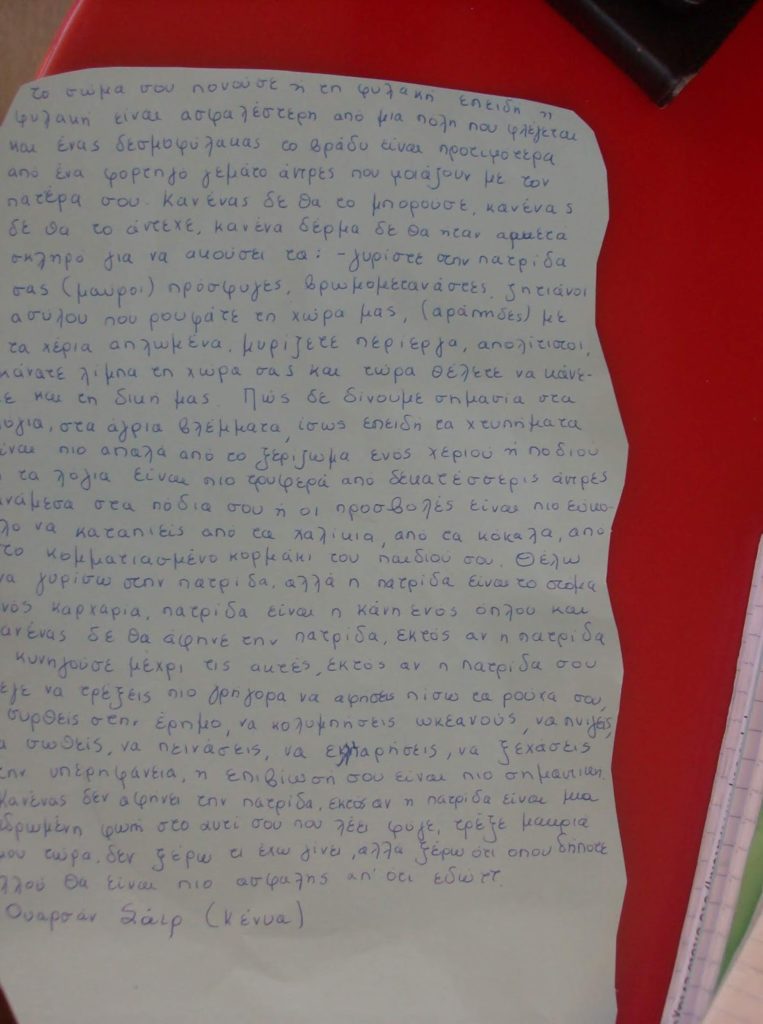 το σώμα σου πονούσε ή τη φυλακή επειδή η
φυλακή είναι ασφαλέστερη από μια πόλη που φλέγεται
και ένας δεσμοφύλακας το βράδυ είναι προτιμότερα
από ένα φορτηγό γεμάτο άντρες που μοιάζουν με τον
πατέρα σου. Κανένας δε θα το μπορούσε, κανένας
δε θα το άντεχε, κανένα δέρμα δε θα ήταν αρκετά
σκληρό για να ακούσει τα: - γυρίστε στην πατρίδα
σας (μαύροι) πρόσφυγες, βρωμομετανάστες, ζητιάνοι
ασύλου που ρουφάτε τη χώρα μας, (αράπηδες) με
τα χέρια απλωμένα, μυρίζετε περίεργα, απολίτιστοι,
κάνατε λίμπα τη χώρα σας και τώρα θέλετε να κάνε-
ε και τη δική μας. Πώς δε δίνουμε σημασία στα
όγια, στα άγρια βλέμματα, ίσως επειδή τα χτυπήματα
είναι πιο απαλά από το ξερίζωμα ενός χεριού ή ποδιού
τα λόγια είναι πιο τρυφερά από δεκατέσσερις άντρες
ανάμεσα στα πόδια σου ή οι προσβολές είναι πιο εύκο-
λο να καταπιείς από τα χαλίκια, από τα κόκαλα, από
το κομματιασμένο κορμάκι του παιδιού σου. Θέλω
να γυρίσω στην πατρίδα, αλλά η πατρίδα είναι το στόμα
νός καρχαρία, πατρίδα είναι η κάνη ενός όπλου και
ανένας δε θα άφηνε την πατρίδα, εκτός αν η πατρίδα
κυνηγούσε μέχρι τις ακτές, εκτός αν η πατρίδα σου
εγε να τρέξεις πιο γρήγορα να αφήσεις πίσω τα ρούχα σου,
συρθείς στην έρημο, να κολυμπήσεις ωκεανούς, να πνιγείς,
α σωθείς, να πεινάσεις, να εκλιπαρήσεις, να ξεχάσεις
την υπερηφάνεια, η επιβίωσή σου είναι πιο σημαντική.
Κανένας δεν αφήνει την πατρίδα, εκτός αν η πατρίδα είναι μια
ιδρωμένη φωνή στο αυτί σου που λέει φύγε, τρέξε μακριά
μου τώρα, δεν ξέρω τι έχω γίνει, αλλά ξέρω ότι οπουδήποτε
λλού θα είναι πιο ασφαλής απ' ότι εδώ
Ουαρσάν Σάιρ (Κένυα)